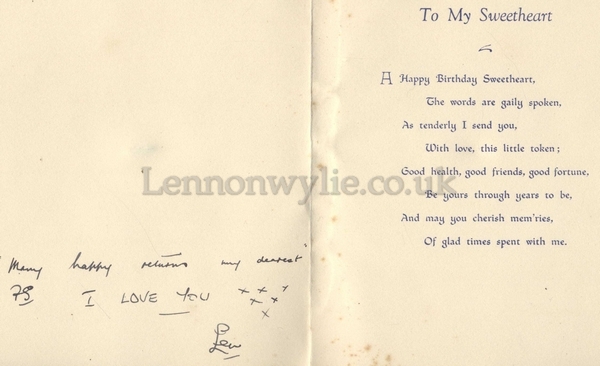 "Many happy returns my dearest"
PS I LOVE YOU x x x x x x
Len
To My Sweetheart
A Happy Birthday Sweetheart,
The words are gaily spoken,
As tenderly I send you,
With love, this little token;
Good health, good friends, good fortune,
Be yours through years to be,
And may you cherish mem'ries,
Of glad times spent with me.
Lennonwylie.co.uk